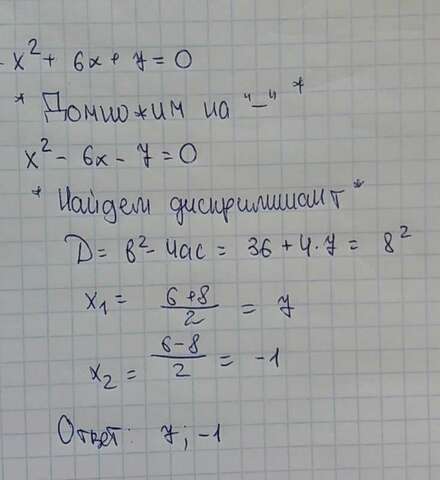 - x² + 6x + 7 = 0
* Домножим на "-" *
x² - 6x - 7 = 0
* Найдем дискриминант *
D = b² - 4ac = 36 + 4·7 = 8²
x₁ = (6+8)/2 = 7
x₂ = (6-8)/2 = -1
Ответ: 7; -1